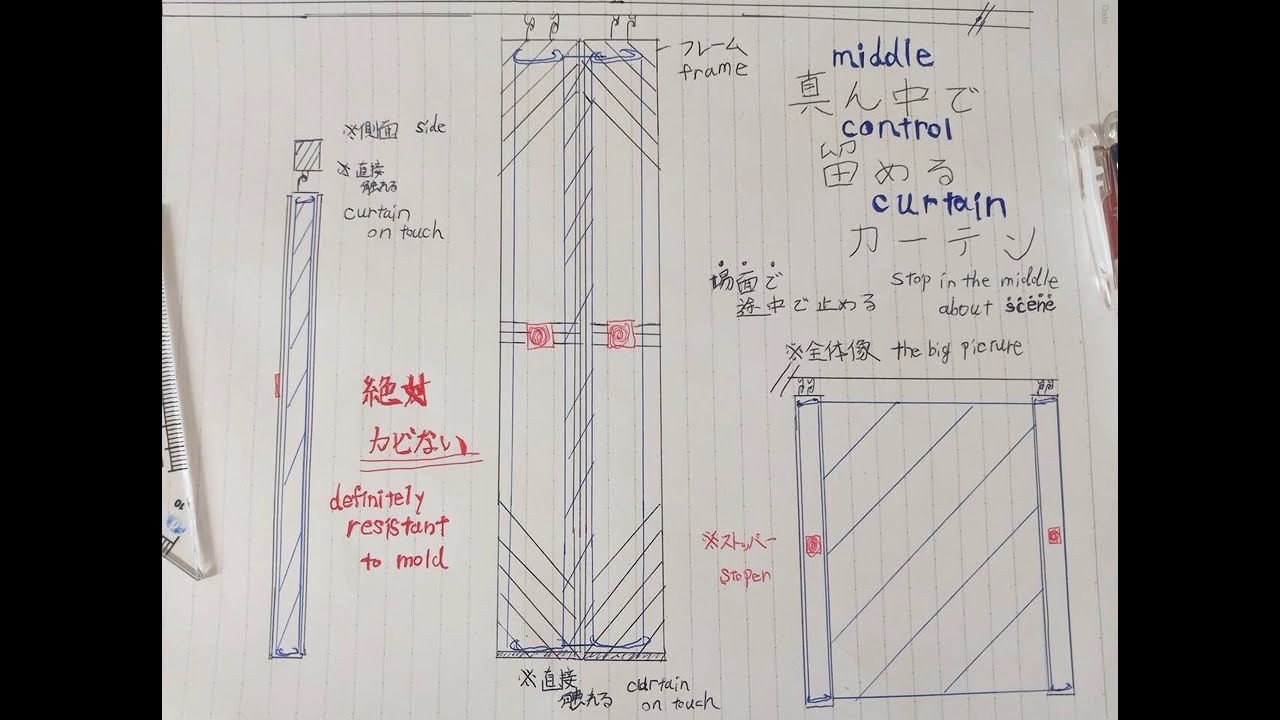 Date
フレーム
frame
middle
真ん中で
control
留める
curtain
カーテン
場面で
途中で止める
stop in the middle
about scene
※側面 side
※直接
触れる
curtain
on touch
絶対
カビない
definitely
resistant
to mold
※全体像 the big picrure
※ストッパー
stoper
※直接
触れる
curtain
on touch
10